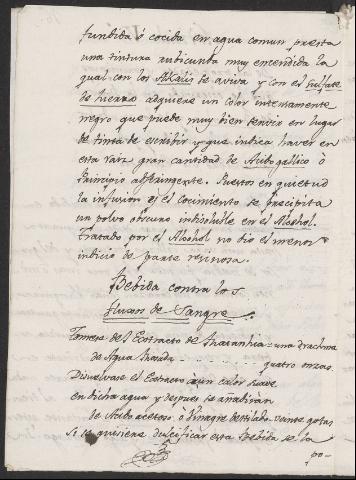 fundida ó cocida en agua comun presta
una tintura rubicunda muy encendida la
qual con los Alkalis se aviva y con el sulfate
de hierro adquiere un color intensamente
negro que puede muy bien servir en lugar
de tinta de escribir y que indica haver en
esta raiz gran cantidad de Acido gallico ò
Principio adstringente. Puestos en quietud
la infusion ó el cocimiento se precipita
un polvo obscuro indisoluble en el Alcohol.
Tratado por el Alcohol no dio el menor
indicio de parte resinosa.
Bebida contra los
fluxos de Sangre.
Tomese del Extracto de una drachma
de Agua quatro onzas.
Disuelvase el Extracto à un calor suave
en dicha agua y despues se anadiran
de Acido acetoso ò Vinagre destilado veinte gotas
Si se quisiere dulcificar esta Bebida se la
po-